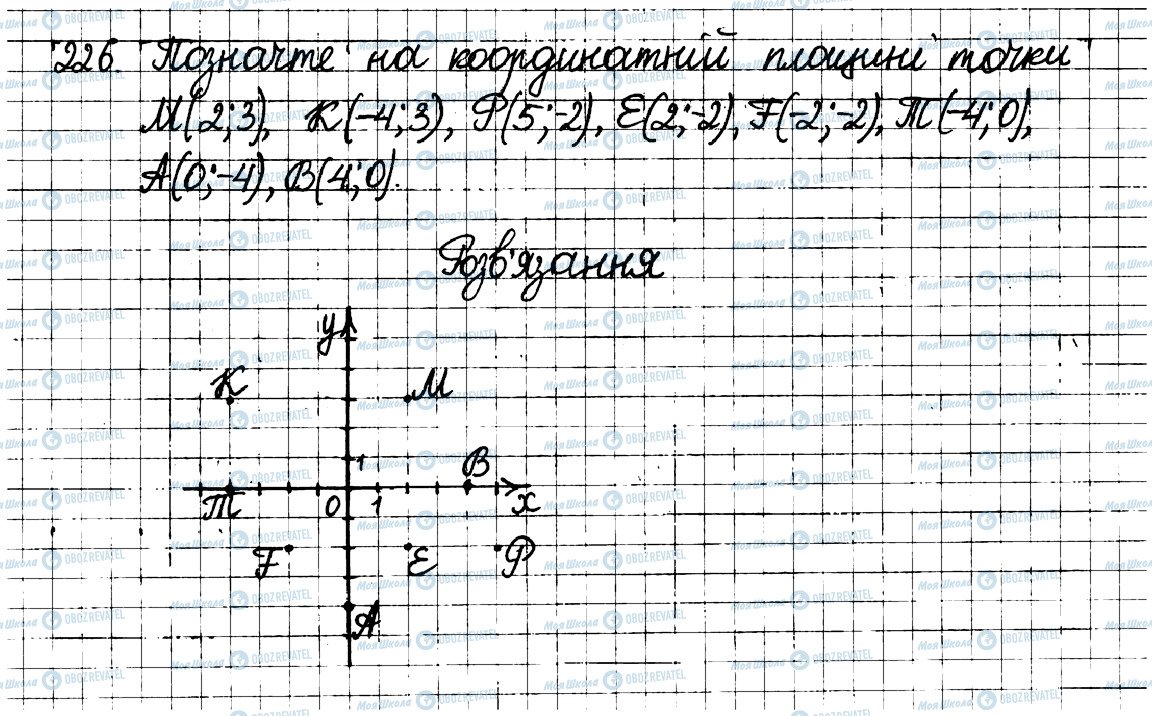 226 Позначте на координатній площині точки
M(2;3), K(-4;3), P(5;-2), E(2;-2), F(-2;-2), T(-4;0),
A(0;-4), B(4;0).
Розв'язання
y
K M
1 B
T 0 1 x
F E P
A
МояШкола OBOZREVATEL